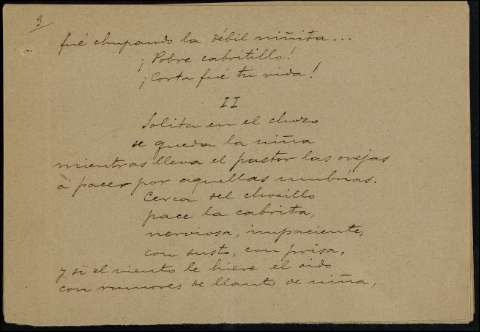 3
fué chupando la débil niñita...
¡Pobre cabritillo!
¡Corta fué tu vida!
II
Solita en el chozo
se queda la niña
mientras lleva el pastor las ovejas
á pacer por aquellas umbrías.
Cerca del chocillo
pace la cabrita,
nerviosa, impaciente,
con susto, con prisa,
y si el viento le hiere el oído
con rumores de llanto de niña,